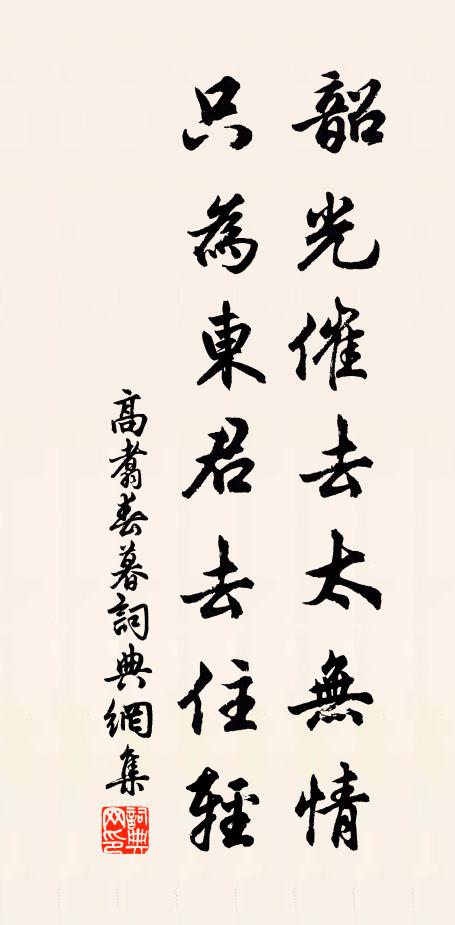 韶光催去太無情
只為東君去住輕
高翥春暮詞典網集
詞典網印